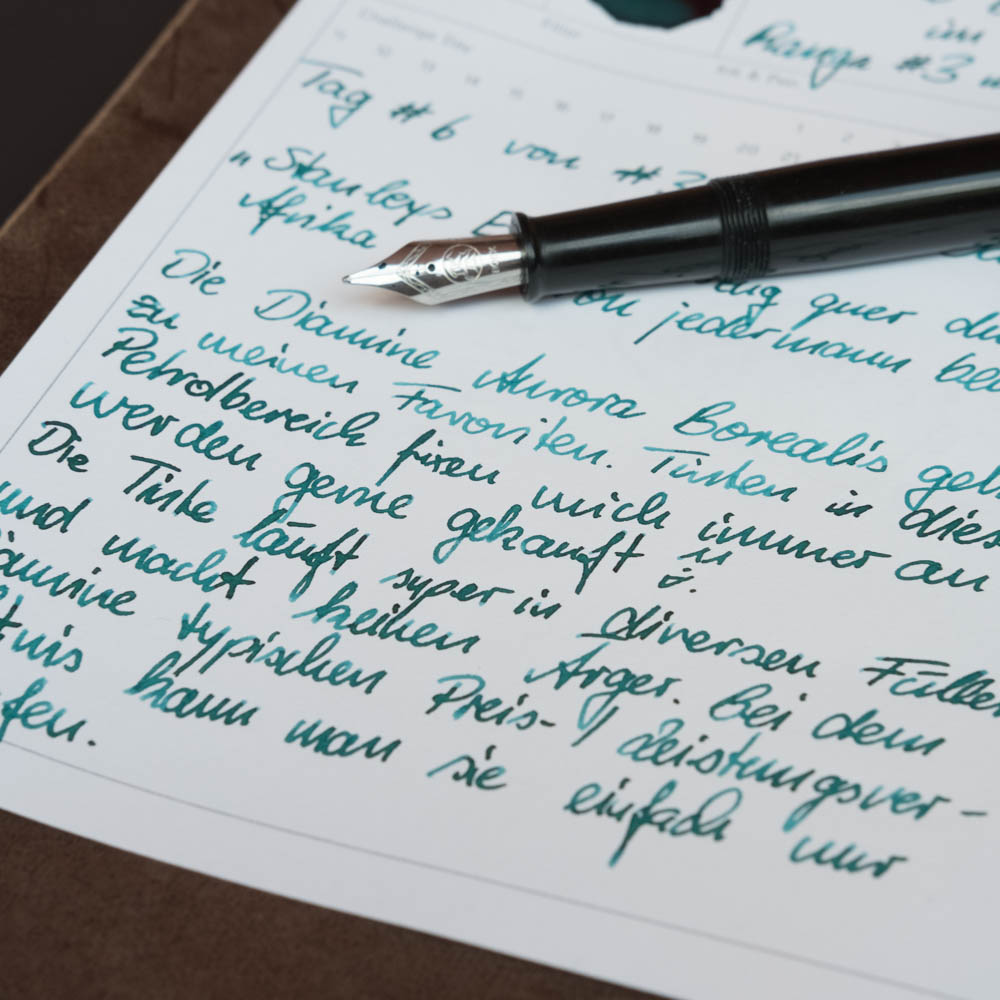 im
Range #3
Challenge Tag
12 13 14 15 16 17 18 19 20 21
1 2
Tag #6 von #3
"Stanleys E
Afrika
quer du
von jedermann be
Die Diamine Aurora Borealis geh
zu meinen Favoriten. Tinten in dies
Petrolbereich fixen mich immer an
werden gerne gekauft
Die Tinte läuft super in diversen Füller
und macht keinen Ärger. Bei dem
iamine typischen Preis-/Leistungsver-
tnis kann man sie einfach nur
fen.